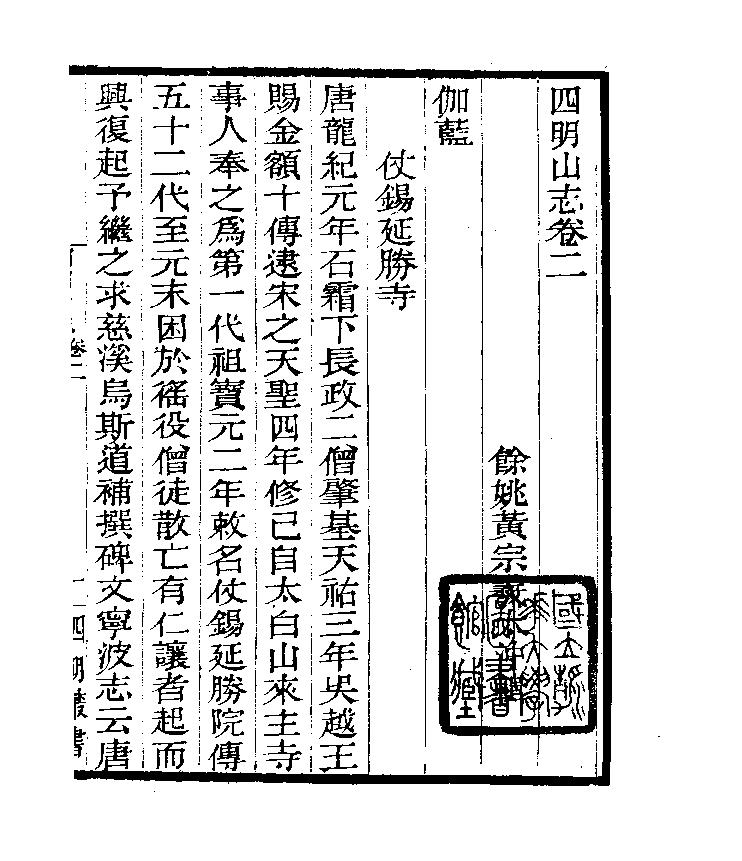 四明山志卷二
餘姚黃宗
伽藍
仗錫延勝寺
唐龍紀元年石霜下長政二僧肇基天祐三年吳越王
賜金額十傳逮宋之天聖四年修己自太白山來主寺
事人奉之爲第一代祖寶元二年敕名仗錫延勝院傳
五十二代至元末困於徭役僧徒散亡有仁讓者起而
興復起予繼之求慈溪烏斯道補撰碑文寧波志云唐
卷二
四明叢書
國立
大學
圖書
館藏